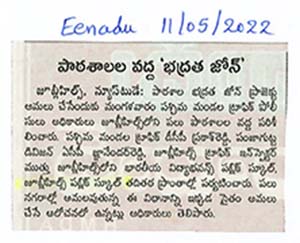 Eenadu 11/05/2022
పాఠశాలల వద్ద 'భద్రత జోన్'
జూబ్లీహిల్స్, న్యూస్‌టుడే: పాఠశాల భద్రత జోన్ ప్రాజెక్టు
అమలు చేసేందుకు మంగళవారం పశ్చిమ మండల ట్రాఫిక్ పోలీ
సు అధికారులు జూబ్లీహిల్స్‌లోని పలు పాఠశాలల వద్ద పరిశీ
లించారు. పశ్చిమ మండల ట్రాఫిక్ డీసీపీ ప్రకాశ్‌రెడ్డి, పంజాగుట్ట
డివిజన్ ఏసీపీ జ్ఞానేందర్‌రెడ్డి, జూబ్లీహిల్స్ ట్రాఫిక్ ఇన్‌స్పెక్టర్
ముత్తు జూబ్లీహిల్స్‌లోని భారతీయ విద్యాభవన్స్ పబ్లిక్ స్కూల్,
జూబ్లీహిల్స్ పబ్లిక్ స్కూల్ తదితర ప్రాంతాల్లో పర్యటించారు. పలు
నగరాల్లో అమలవుతున్న ఈ విధానాన్ని ఇక్కడ సైతం అమలు
చేసే ఆలోచనలో ఉన్నట్లు అధికారులు తెలిపారు.